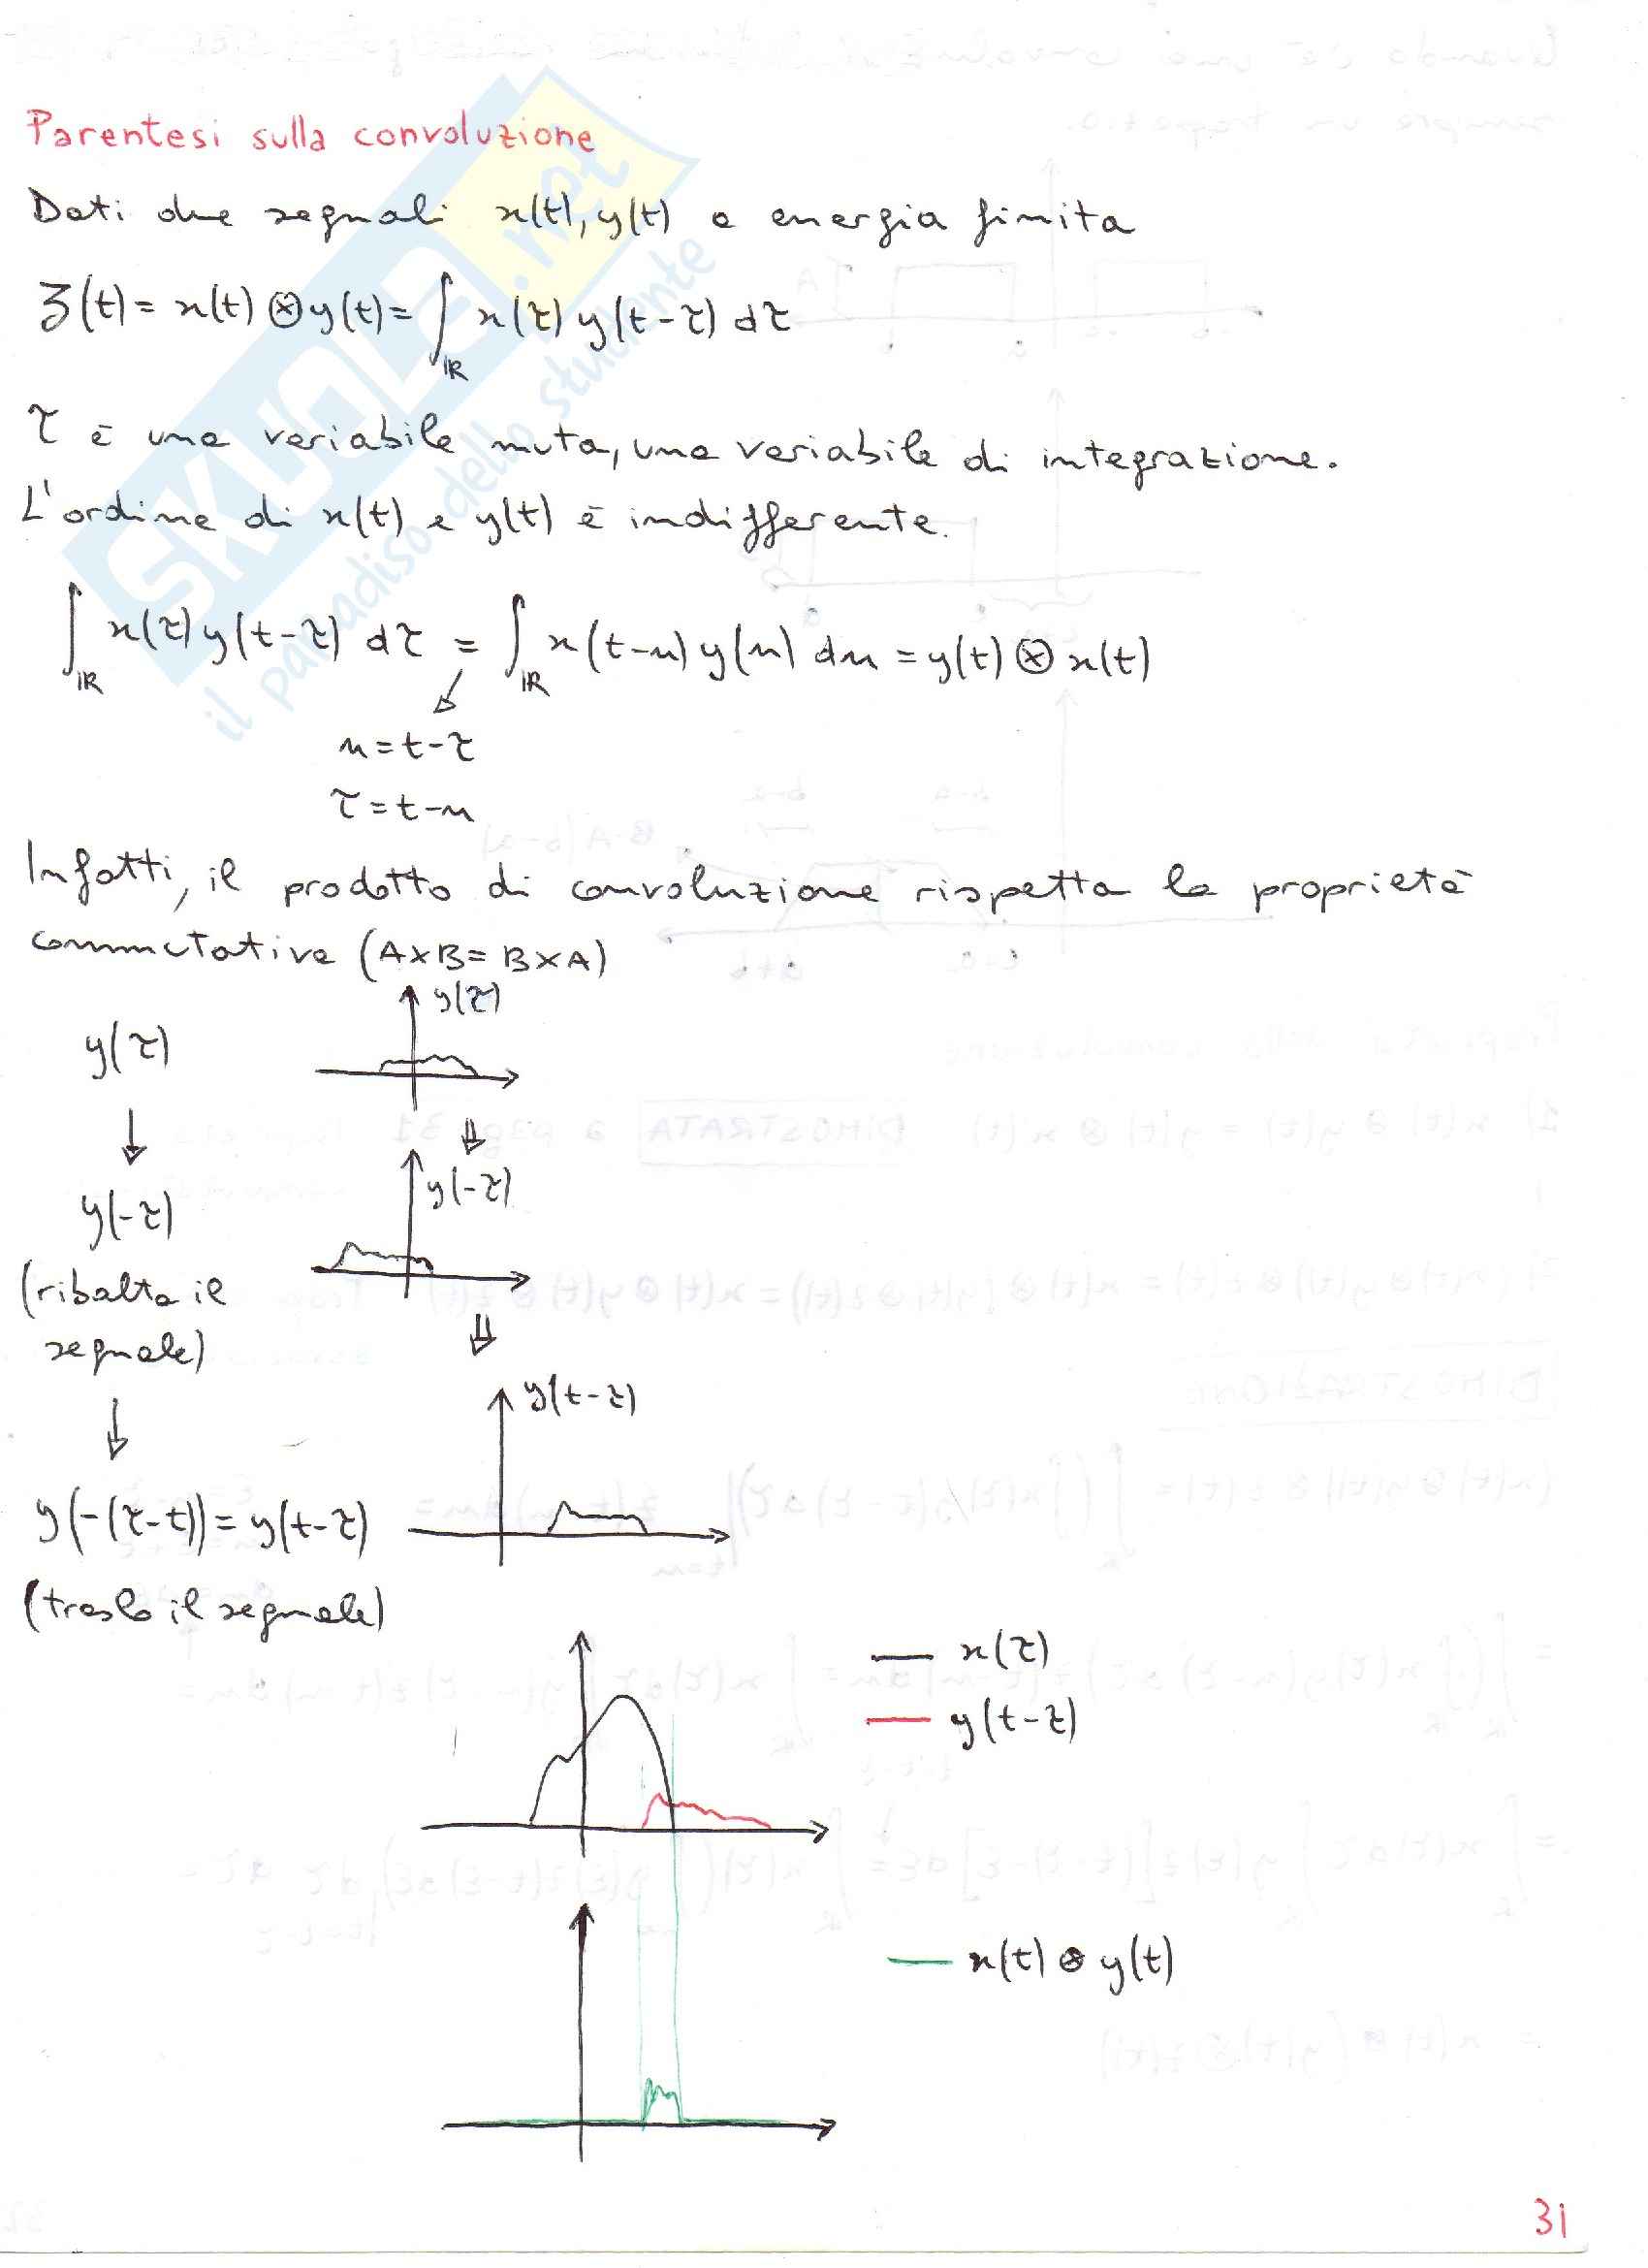 Parentesi sulla convoluzione
Dati due segnali x(t), y(t) a energia finita
z(t) = x(t) ⊗ y(t) = ∫_ℝ x(τ) y(t-τ) dτ
τ è una variabile muta, una variabile di integrazione.
L'ordine di x(t) e y(t) è indifferente.
∫_ℝ x(τ) y(t-τ) dτ = ∫_ℝ x(t-u) y(u) du = y(t) ⊗ x(t)
u = t-τ
τ = t-u
Infatti, il prodotto di convoluzione rispetta la proprietà
commutativa (A×B = B×A)
y(τ)
y(τ)
y(-τ)
y(-τ)
(ribalta il
segnale)
y(t-τ)
y(-(τ-t)) = y(t-τ)
(traslo il segnale)
x(τ)
y(t-τ)
x(t) ⊗ y(t)
31
SKUOLA.net
il paradiso dello studente